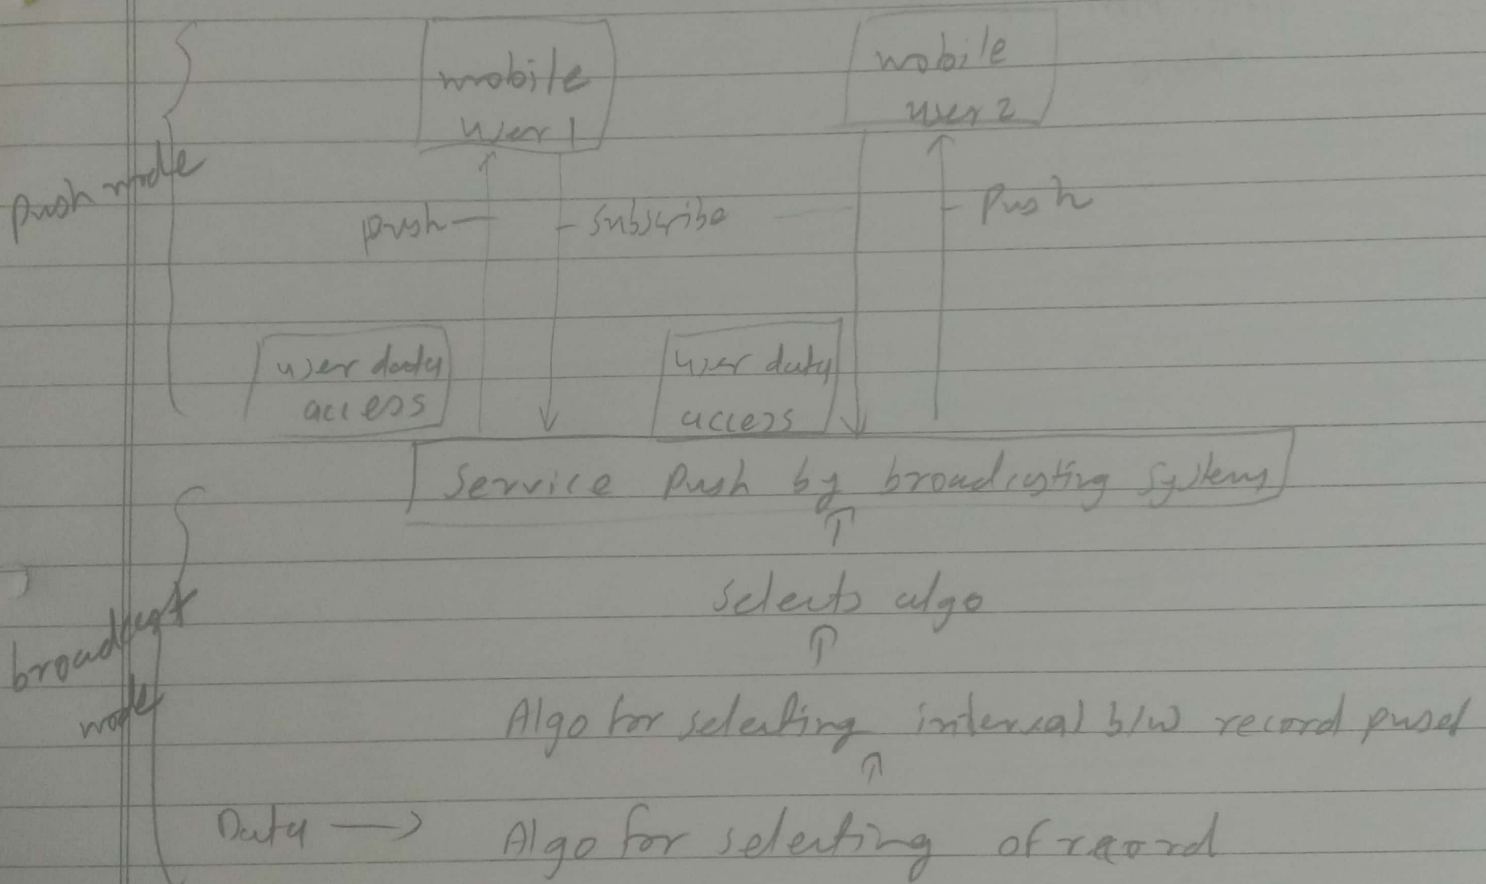 mobile
user 1
mobile
user 2
push mode
push
subscribe
Push
user data
access
user data
access
Service Push by broadcasting systems
selects algo
broadcast
mode
Algo for selecting interval b/w record
Data → Algo for selecting of record